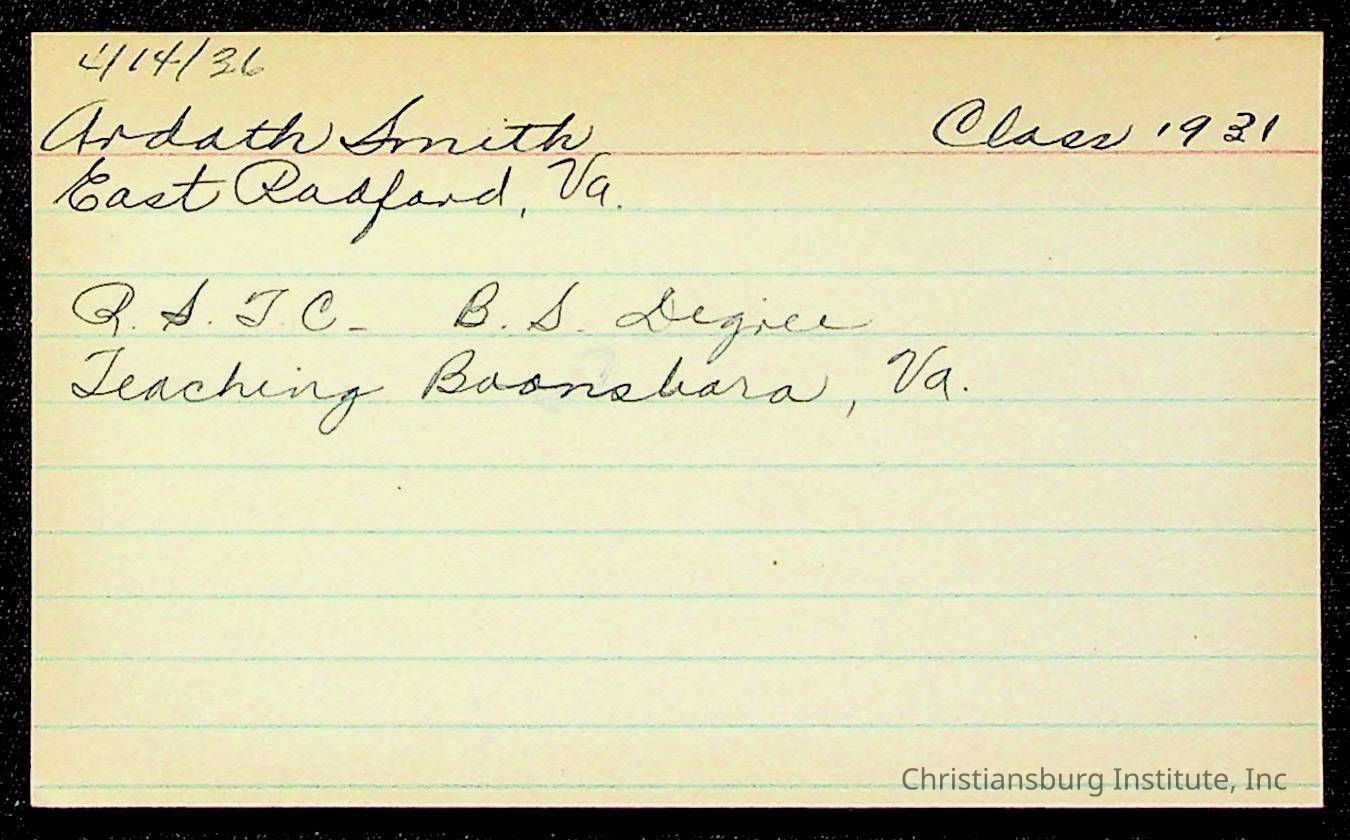 4/14/36
Ardath Smith Class 1931
East Radford, Va.
R. S. T. C. - B. S. Degree
Teaching Boonsboro, Va.
Christiansburg Institute, Inc